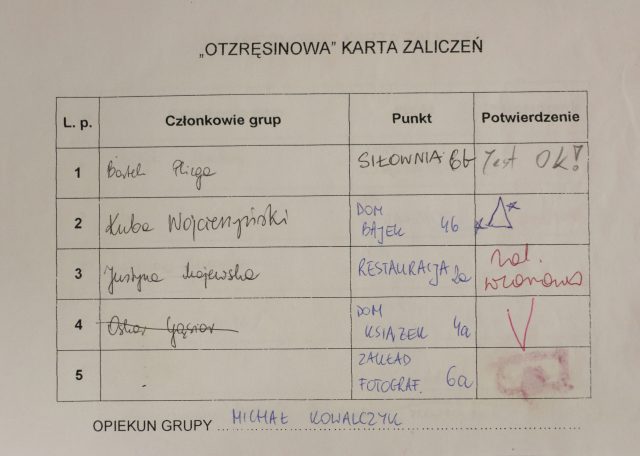 „OTZRĘSINOWA” KARTA ZALICZEŃ
L. p. Członkowie grup Punkt Potwierdzenie
1 Bartek SIŁOWNIA 6b Jest OK!
2 Kuba Wojcieszyński DOM BAJEK 4b
3 Justyna Majewska RESTAURACJA 2a zal. wronowa
4 Oskar Gąsior DOM KSIĄŻEK 4a
5 ZAKŁAD FOTOGRAF. 6a
OPIEKUN GRUPY MICHAŁ KOWALCZYK